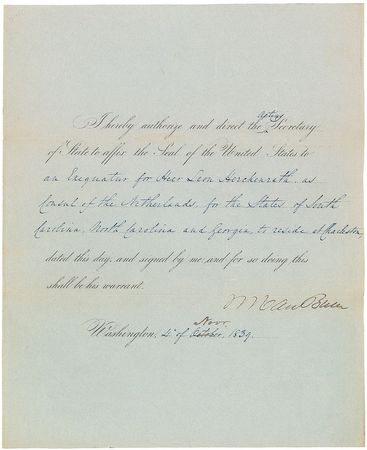 I hereby authorize and direct the Acting Secretary
of State to affix the Seal of the United States to
an Exequatur for Heer Leon Herckenrath, as
Consul of the Netherlands, for the States of South
Carolina, North Carolina and Georgia, to reside at Charleston,
dated this day, and signed by me; and for so doing this
shall be his warrant.
M Van Buren
Washington, 4th of October, Novr. 1839.